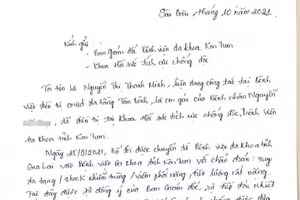 Sài Gòn, tháng 10 năm 2021
Kính gửi
- Ban Giám đốc Bệnh viện đa khoa Kon Tum
- Khoa Hồi sức tích cực chống độc
Tôi tên là Nguyễn Thị Thanh Minh, hiện đang công tác tại Bệnh
viện dã chiến Covid đa tầng Tân Bình, là con gái của Bệnh nhân Nguyễn
đã điều trị tại Khoa Hồi sức tích cực chống độc, bệnh viện
đa khoa tỉnh Kon Tum.
Ngày 25/9/2021, Bố tôi được chuyển từ Bệnh viện đa khoa tỉnh
Gia Lai về Bệnh viện đa khoa tỉnh Kon Tum với chẩn đoán: suy
đa tạng / shock nhiễm trùng / viêm phổi nặng, tiên lượng rất nặng.
Tại đây được sự đồng ý của Ban Giám đốc,